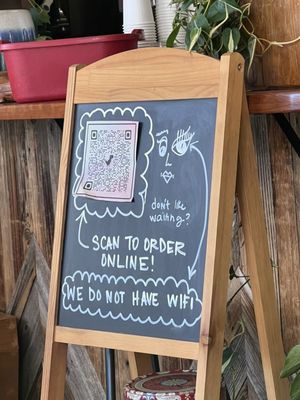 don't like
waiting?
SCAN TO ORDER
ONLINE!
WE DO NOT HAVE WIFI